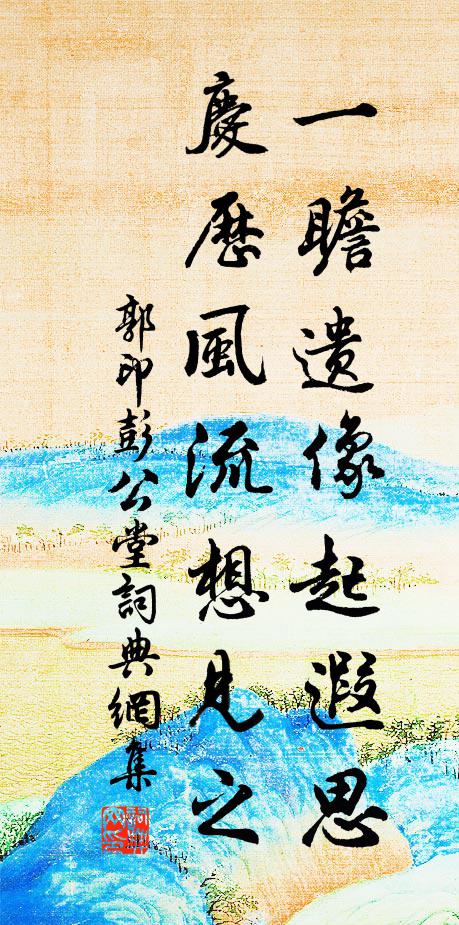 一瞻遗像起遐思
慶歷風流想見之
郭印彭公堂詞典網集